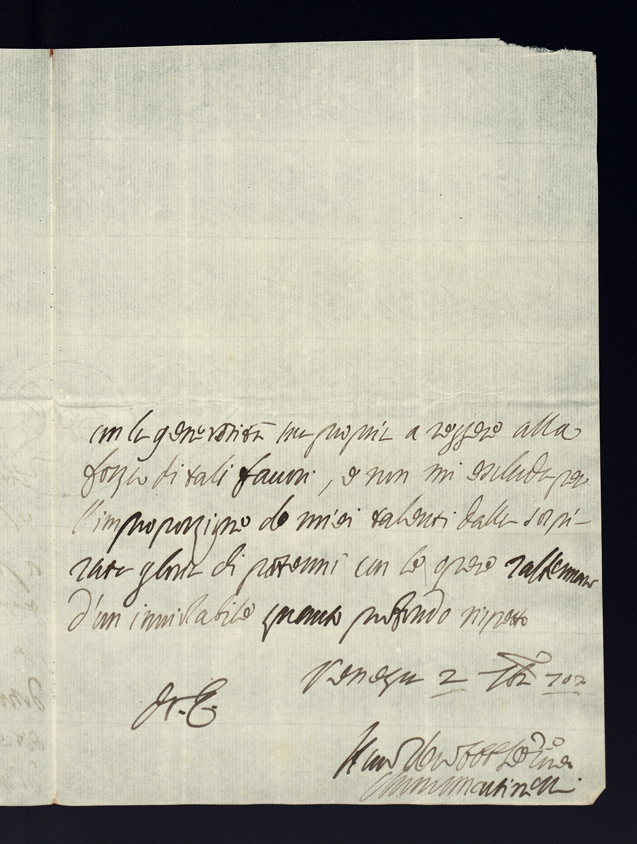 con la generosità sua propria a reggere alla
forza di tali favori, e non mi escluda per
l'improporzione de miei talenti dalla sospi-
rata gloria di potermi con le prove rassermar
d'un inviolabile quanto profondo rispetto
Venezia 2 702
di V. E.
Martinelli